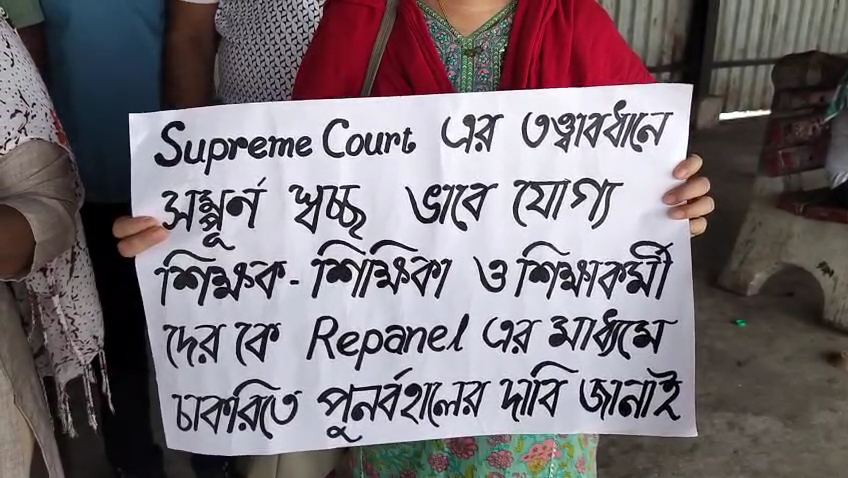 Supreme Court এর তত্ত্বাবধানে
সম্পূর্ন স্বচ্ছ ভাবে যোগ্য
শিক্ষক - শিক্ষিকা ও শিক্ষাকর্মী
দের কে Repanel এর মাধ্যমে
চাকরিতে পুনর্বহালের দাবি জানাই